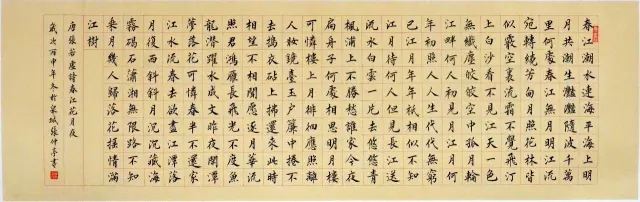 春江潮水連海平海上明
月共潮生灩灩隨波千萬
里何處春江無月明江流
宛轉繞芳甸月照花林皆
似霰空裏流霜不覺飛汀
上白沙看不見江天一色
無纖塵皎皎空中孤月輪
江畔何人初見月江月何
年初照人人生代代無窮
已江月年年祇相似不知
江月待何人但見長江送
流水白雲一片去悠悠青
楓浦上不勝愁誰家今夜
扁舟子何處相思明月樓
可憐樓上月徘徊應照離
人妝鏡臺玉戶簾中捲不
去擣衣砧上拂還來此時
相望不相聞願逐月華流
照君鴻雁長飛光不度魚
龍潛躍水成文昨夜閒潭
夢落花可憐春半不還家
江水流春去欲盡江潭落
月復西斜斜月沉沉藏海
霧碣石瀟湘無限路不知
乘月幾人歸落花搖情滿
江樹
唐張若虛詩春江花月夜
歲次丙申年冬於蒙城張仲亭書